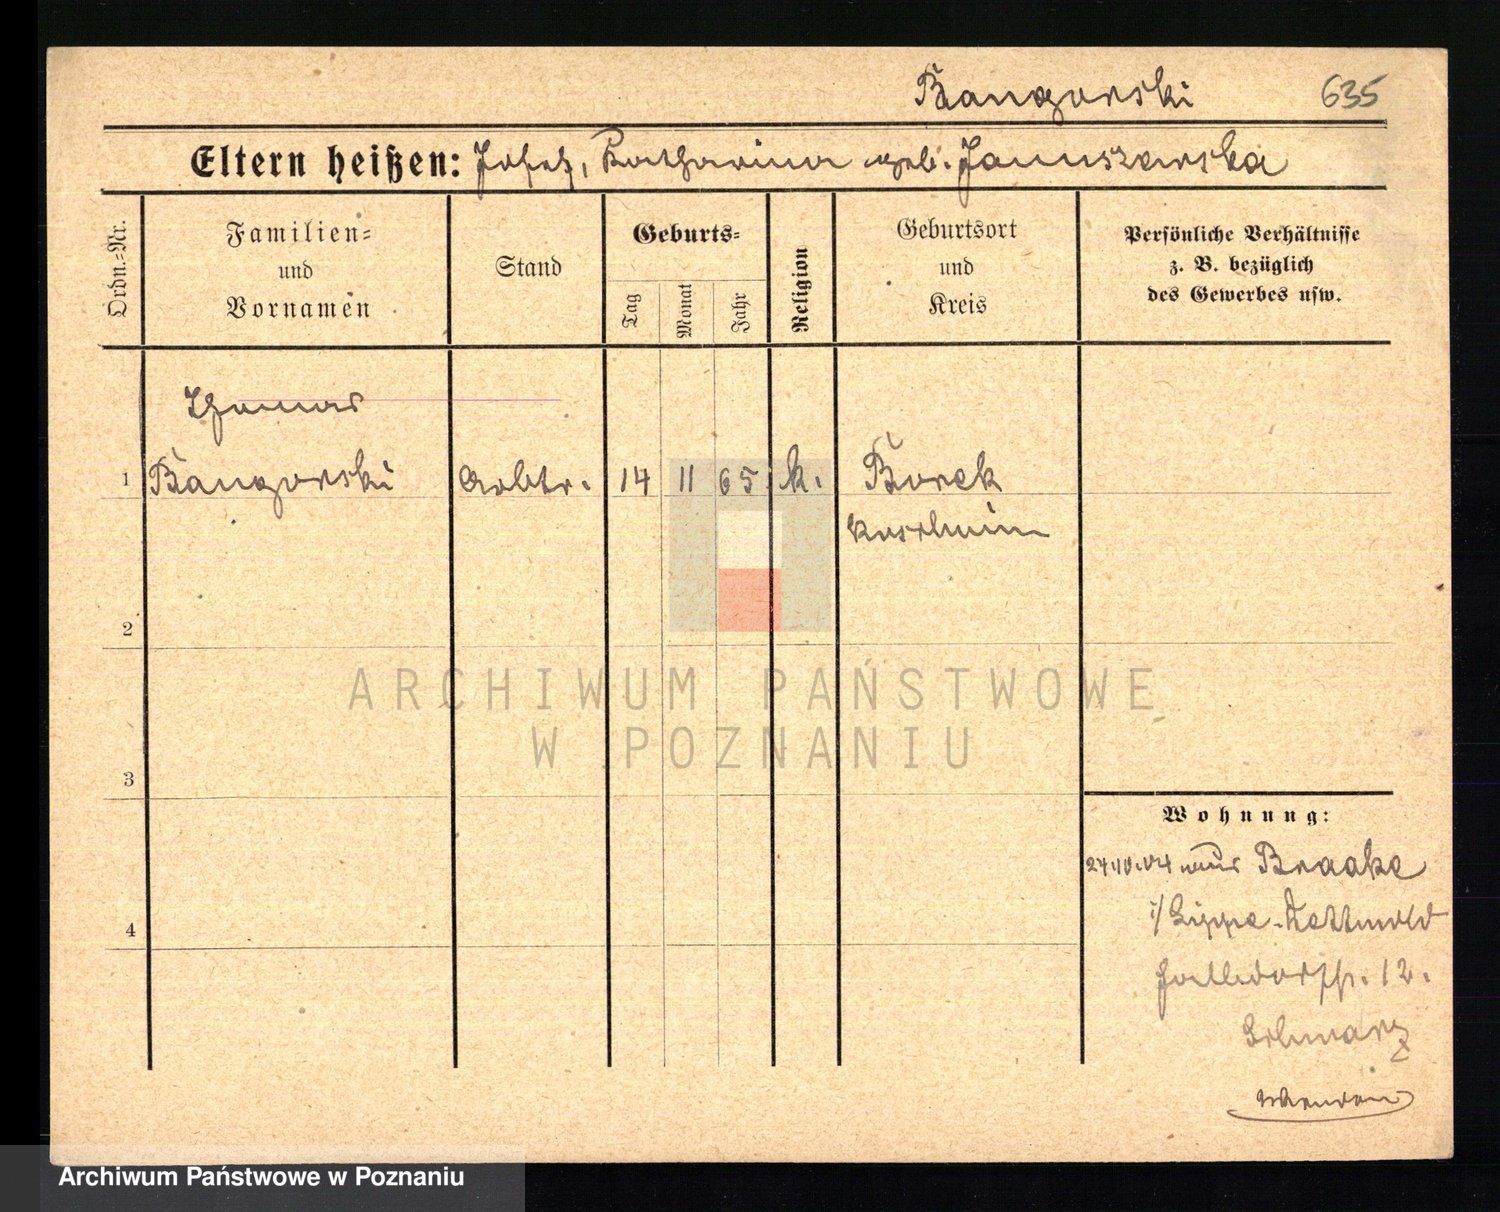 Bangorski 635
Eltern heißen: Josef, Katharina geb. Januszewska
Ordn.-Nr.
Familien-
und
Vornamen
Stand
Geburts-
Tag
Monat
Jahr
Religion
Geburtsort
und
Kreis
Persönliche Verhältnisse
z. B. bezüglich
des Gewerbes usw.
Thomas
1 Bangorski Arbtr. 14 11 65. k. Borek
Koschmin
2
3
4
Wohnung:
24.10.04 aus Braake
i/ Lippe-Dettmold
12.
Schwarz
ARCHIWUM PAŃSTWOWE
W POZNANIU
Archiwum Państwowe w Poznaniu